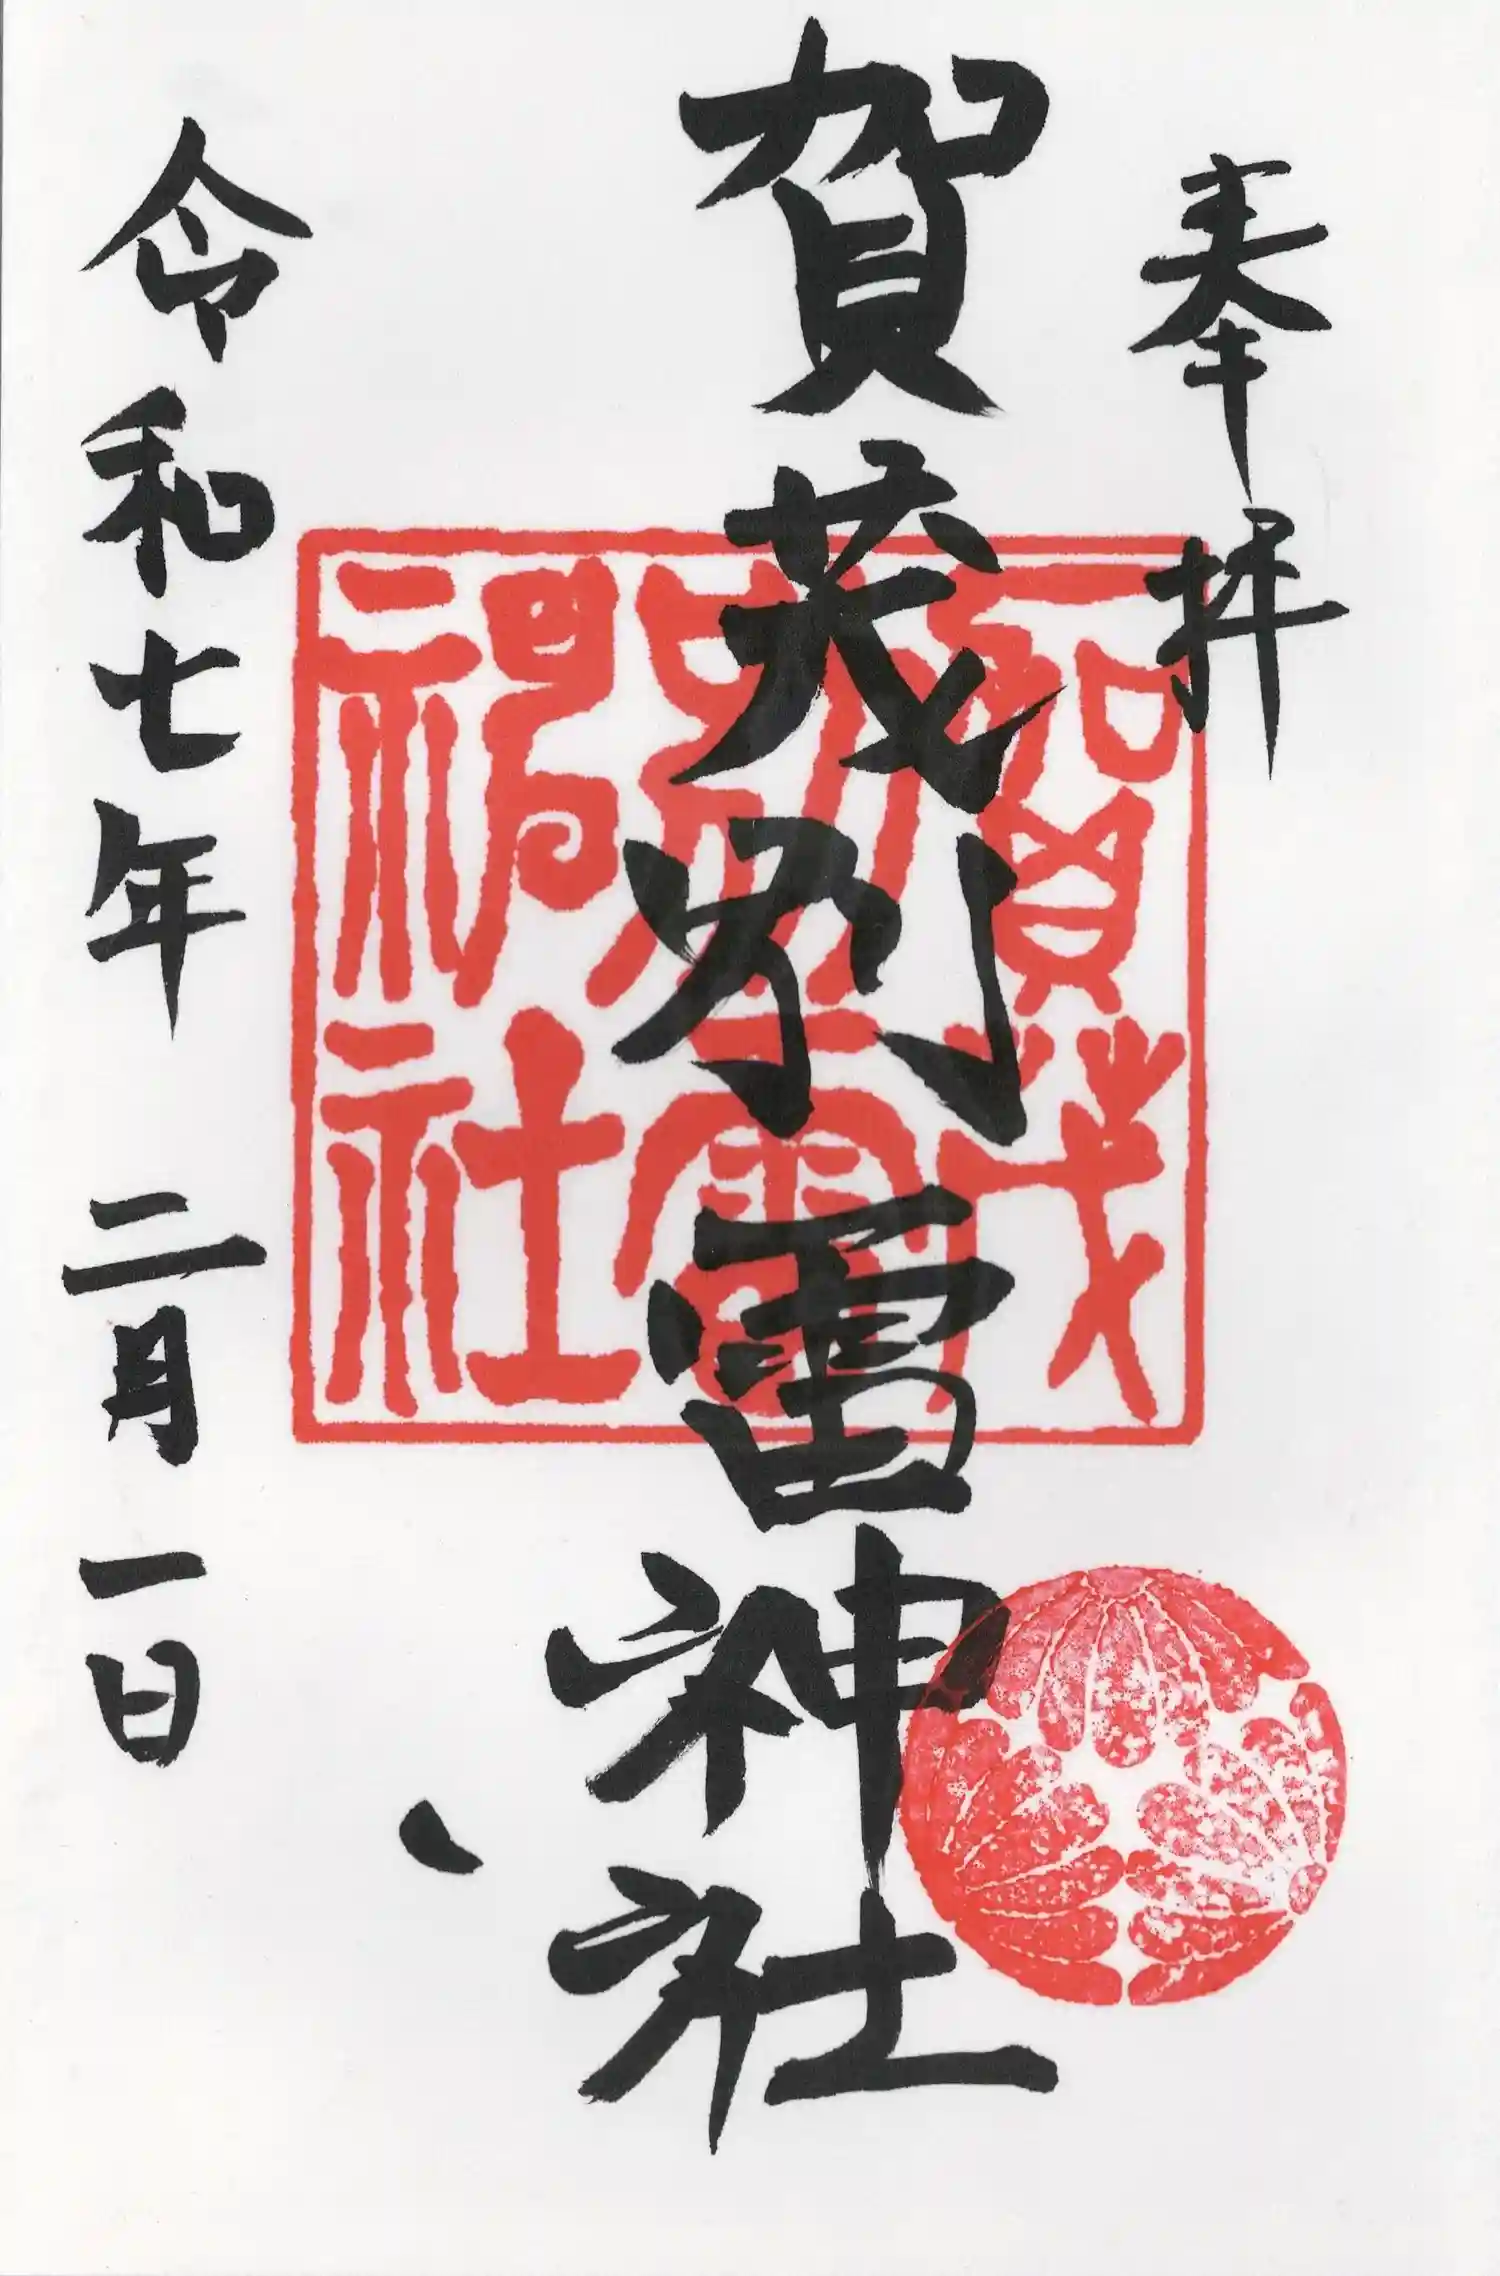 奉拝
賀茂別雷神社
賀茂
別雷
神社
令和七年 二月一日